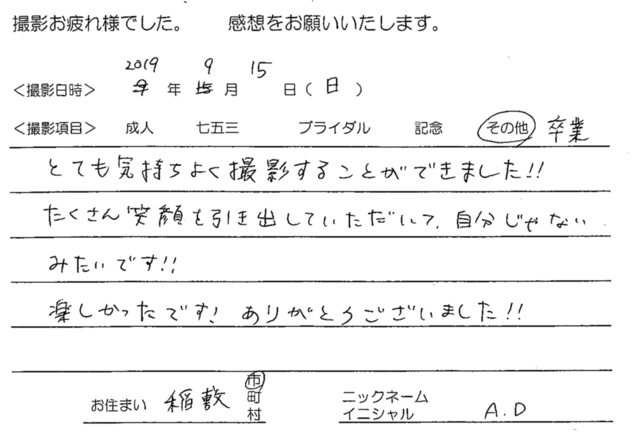 撮影お疲れ様でした。 感想をお願いいたします。
<撮影日時> 2019 年 9 月 15 日(日)
<撮影項目> 成人 七五三 ブライダル 記念 その他 卒業
とても気持ちよく撮影することができました!!
たくさん笑顔を引き出していただいて、自分じゃない
みたいです!!
楽しかったです! ありがとうございました!!
お住まい 稲敷 市 町 村 ニックネーム イニシャル A.D